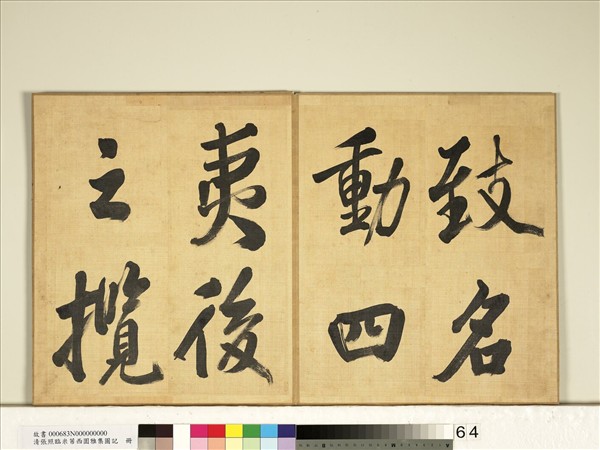 致名
動四
夷後
之攬
故書 000683N000000000
清張照臨米芾西園雅集圖記 冊
64